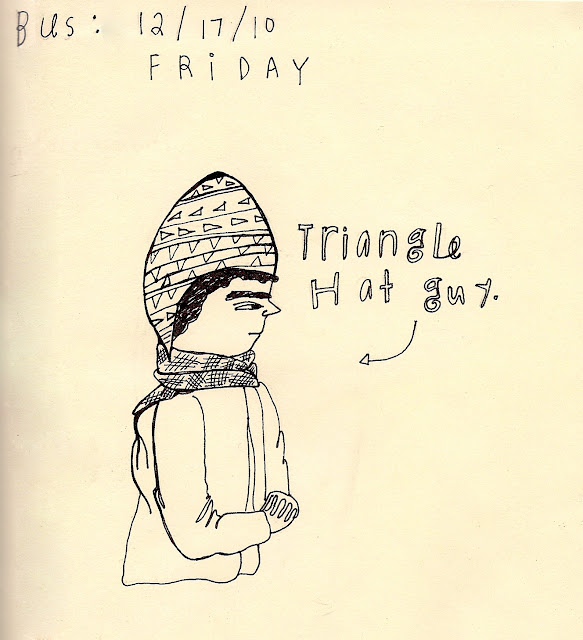 Bus: 12/17/10
FRiDAY
Triangle
Hat guy.